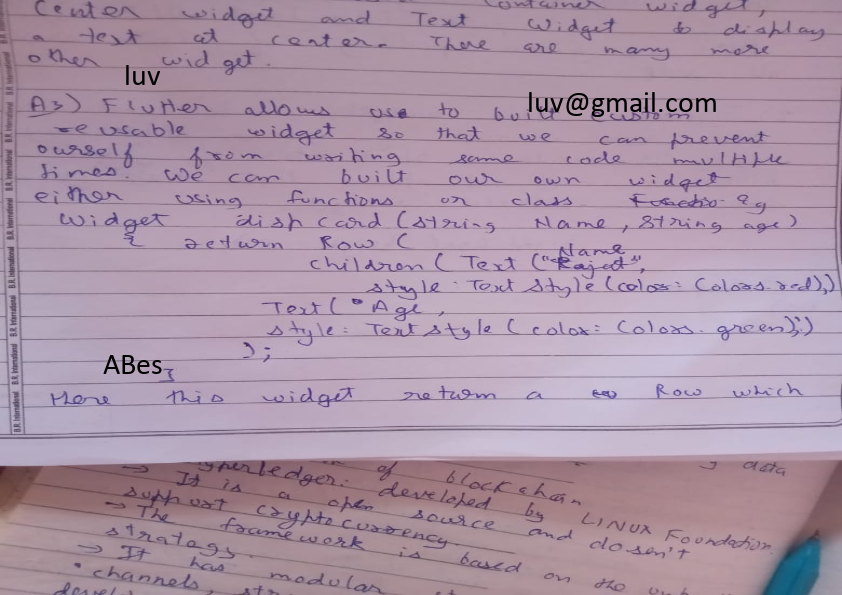 container widget,
Center widget and Text Widget to display
a text at center. There are many more
other widget.
luv
A3) Flutter allows use to built custom
luv@gmail.com
reusable widget so that we can prevent
ourself from writing same code multiple
times. We can built our own widget
either using functions or class Functio. Eg
Widget dish card (string Name, string age)
{ return Row (
Name
children ( Text ("Rajat",
style: Text Style (color: Colors.red),)
Text ( Age,
style: Text style ( color: Colors. green);)
);
ABes
}
Here this widget return a Row which
data
hyperledger. of block chain
→ It is a developed by LINUX Foundation
support open source and dosen't
cryptocurrency.
→ The framework is based on the
stratagy.
→ It has modular
• channels,